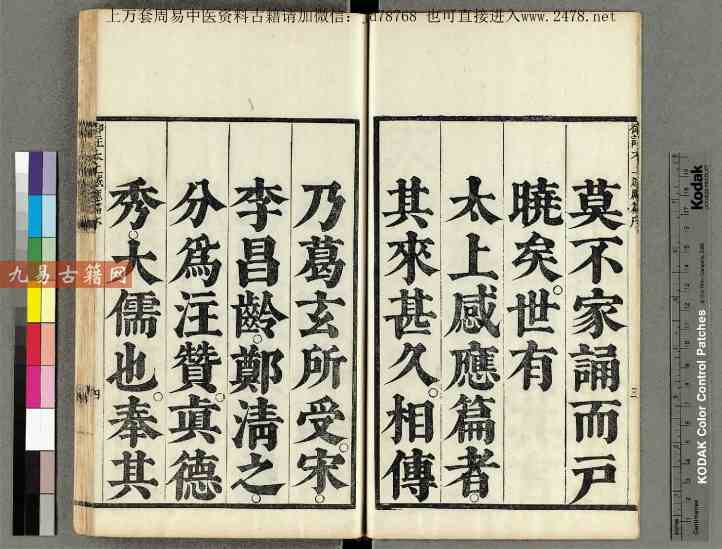 上万套周易中医资料古籍请加微信：jd78768 也可直接进入www.2478.net
莫不家誦而戸
曉矣。世有
太上感應篇者。
其來甚久。相傳
三
乃葛玄所受。宋
李昌齡。鄭清之。
分爲注贊。眞德
秀。大儒也。奉其
四
九易古籍网
Kodak
KODAK Color Control Patches